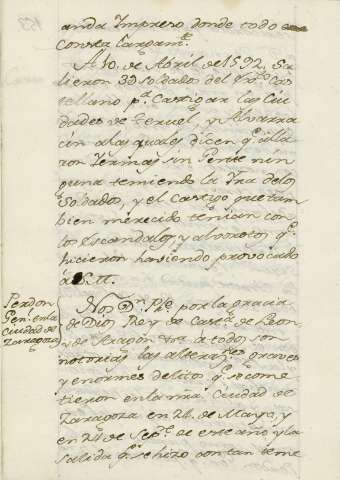 anda Impreso donde todo
Consta largam.te
A 10. de Abril de 1592, sa
lieron 33 soldados del Cas
tellano p.a Castigar las Ciu
dades de teruel, y Alvarra
cin a las quales dicen q.e alla
ron Yermas, y sin Gente nin
guna temiendo la Yra delos
Soldados, y el castigo que tam
bien merecido tenian con
los Escandalos y alvorotos q.e
hicieron haviendo provocado
a S. M.
Perdon
Gen.l en la
Ciudad de
Zaragoza
Nos D.n Ph.e por la gracia
de Dios, Rey de Cast.a de Leon,
de Aragon &.a a todos son
notorias las alterac.nes graves
y enormes delitos q.e se come
tieron en la n.ra Ciudad de
Zaragoza en 24. de Mayo, y
en 24 de Sep.e de este año y la
salida q.e se hizo con tan teme